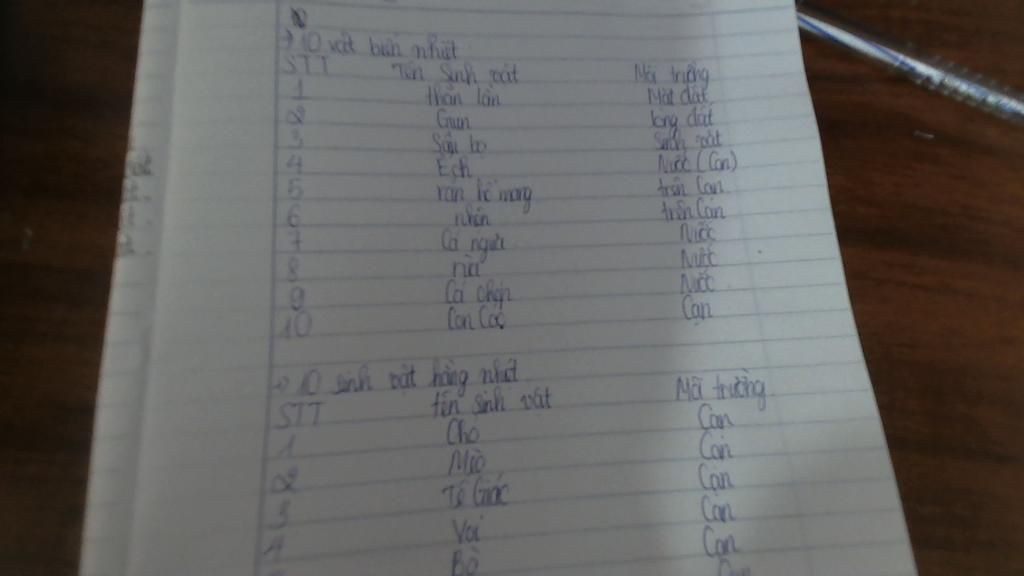 → 10 vật biến nhiệt
STT Tên Sinh vật Môi trường
1 thằn lằn Mặt đất
2 Giun lòng đất
3 Sâu bọ Sinh vật
4 Ếch Nước (Cạn)
5 rắn hổ mang trên Cạn
6 nhện trên Cạn
7 Cá ngựa Nước
8 rùa Nước
9 Cá chép Nước
10 Con Cóc Cạn
→ 10 sinh vật hằng nhiệt
STT tên sinh vật Môi trường
1 Chó Cạn
2 Mèo Cạn
3 Tê Giác Cạn
4 Voi Cạn
Bò Cạn